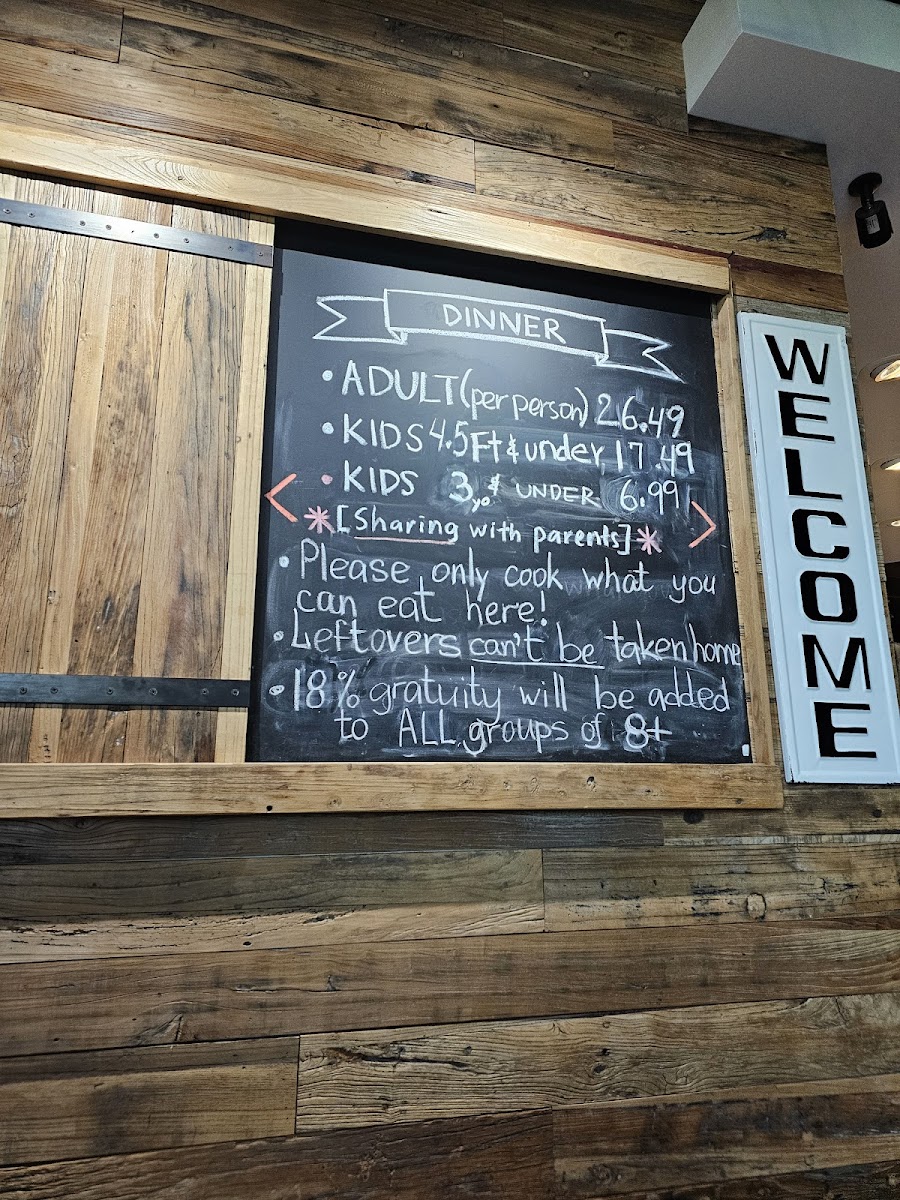 DINNER
• ADULT (per person) 26.49
• KIDS 4.5Ft & under, 17.49
• KIDS 3yo. & UNDER 6.99
*[Sharing with parents]*
• Please only cook what you
can eat here!
• Leftovers can't be taken home
• 18% gratuity will be added
to ALL groups of 8+
WELCOME